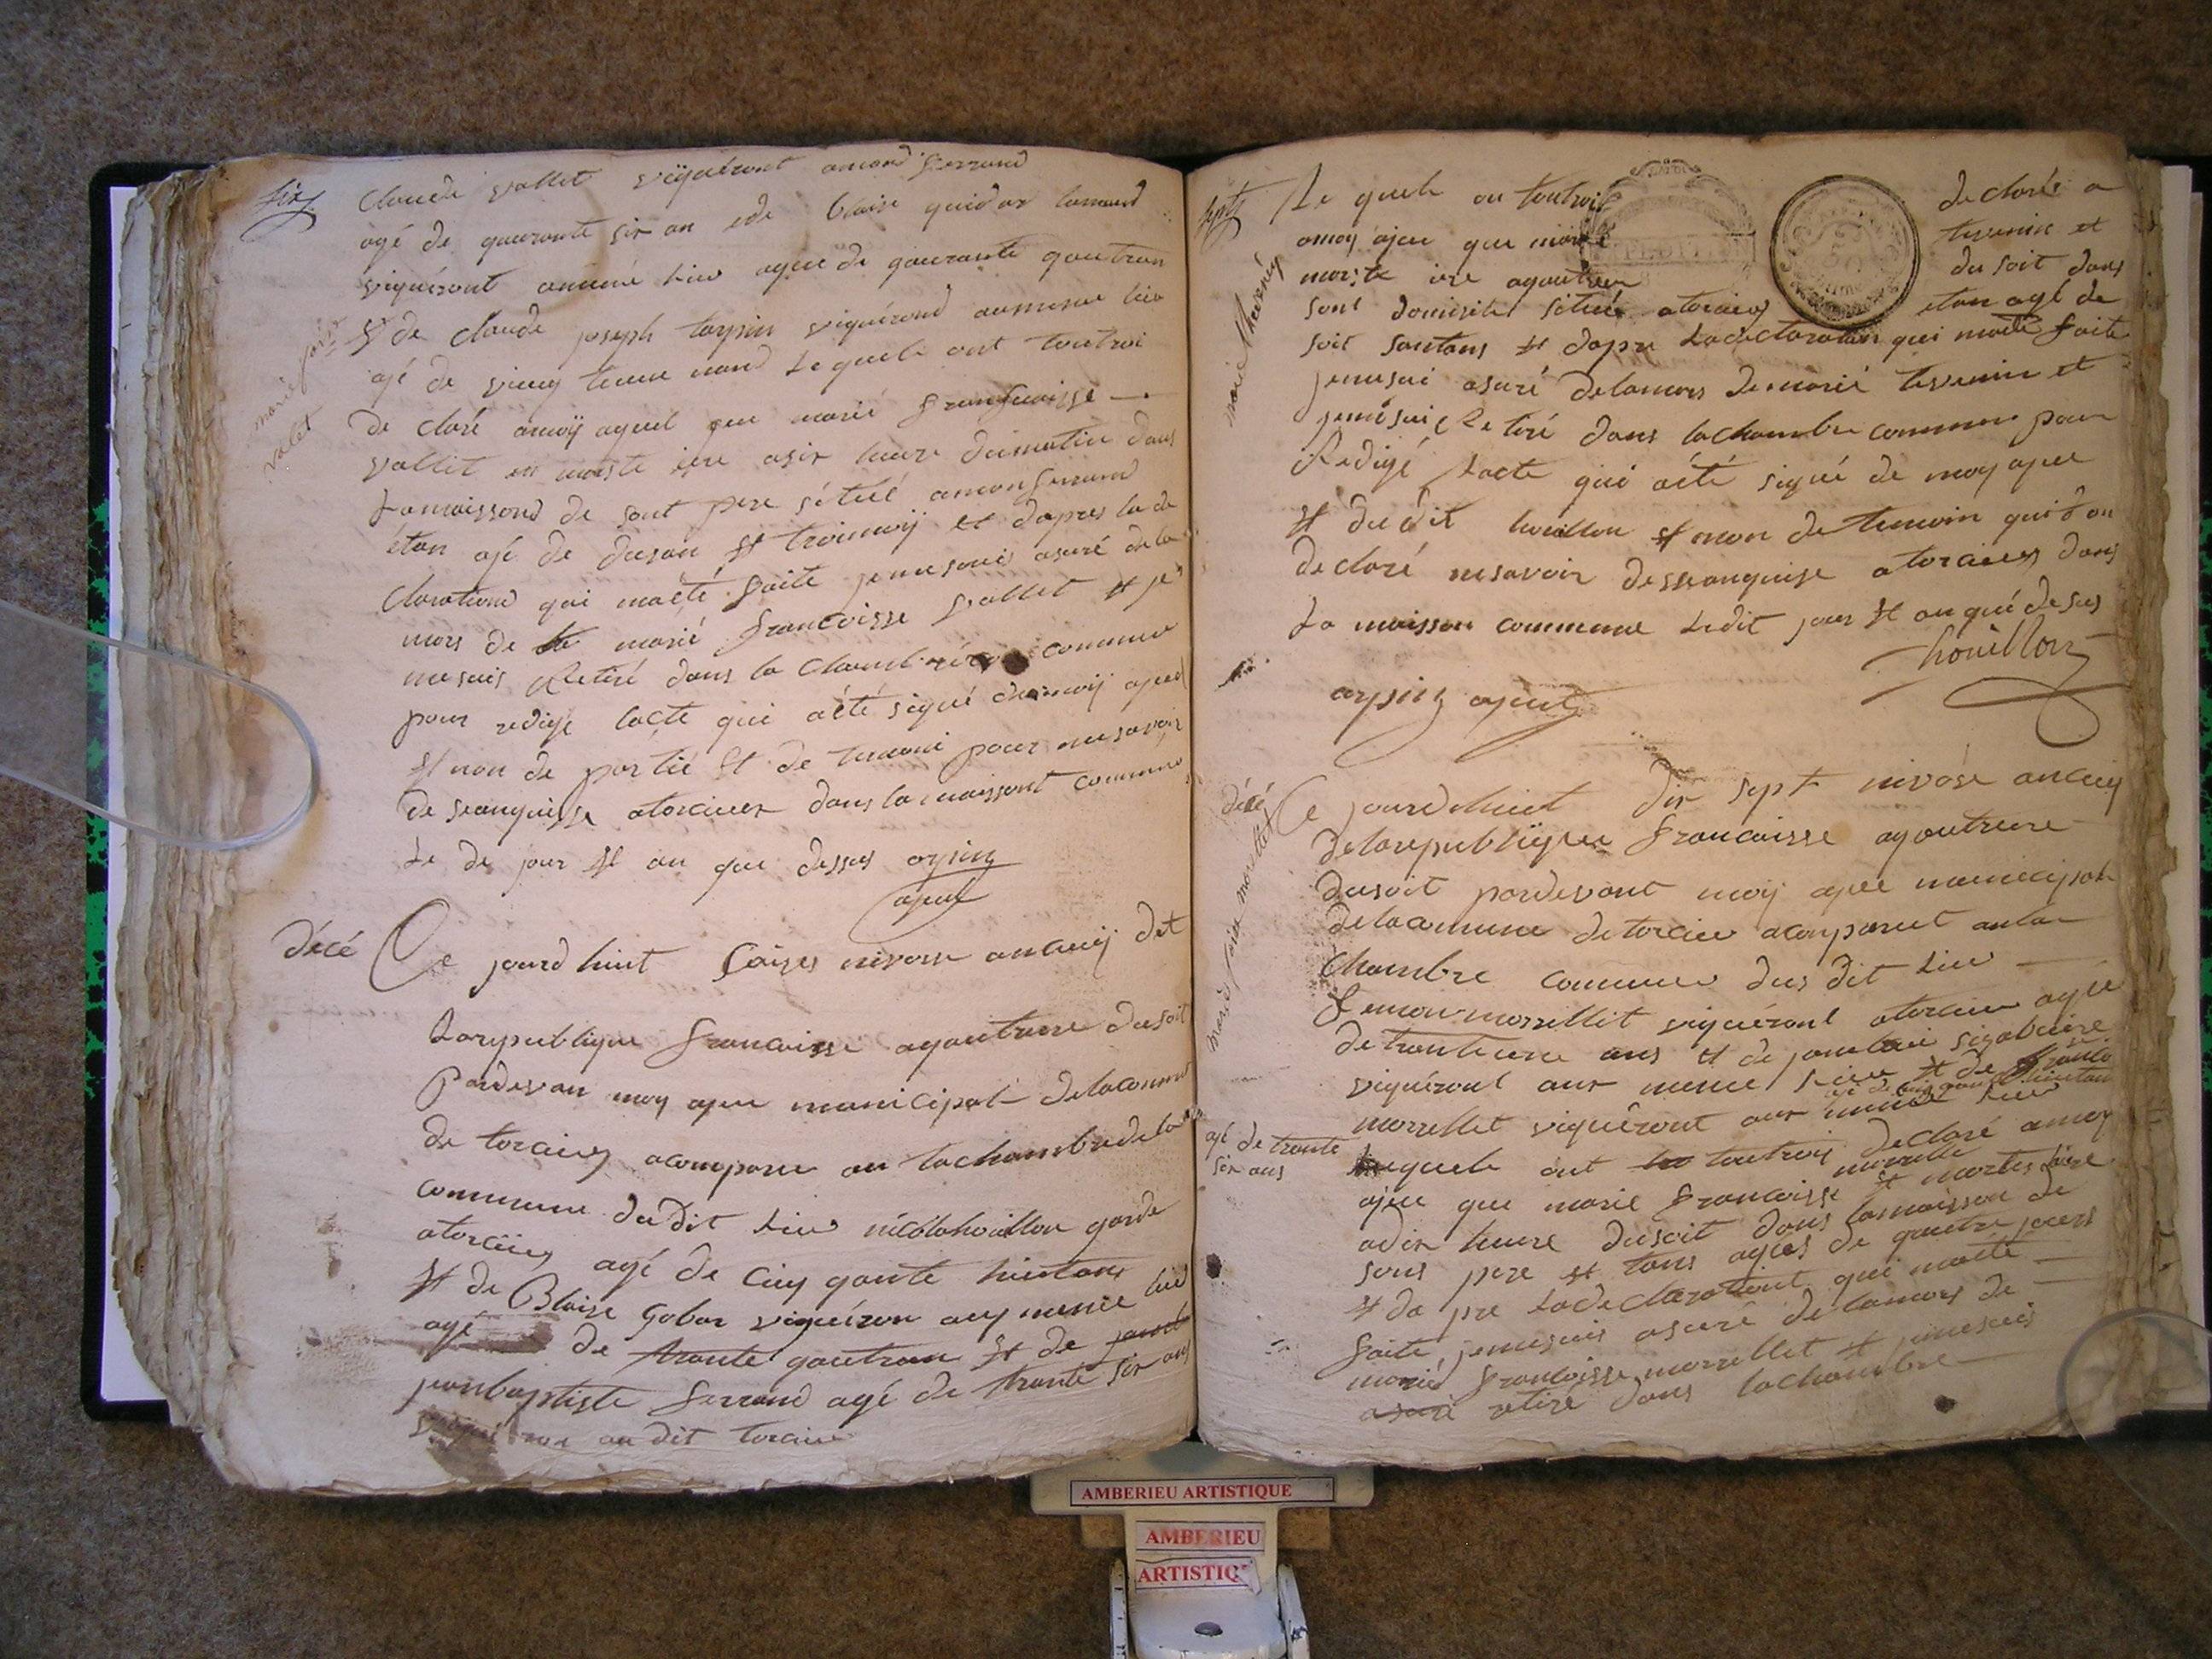 six
Claude vallet viguéront amond ferrand
agé de quaronte six an ede blaise guidor lamand
viguéront aumême lieu agee de gaurante gautran
et de claude joseph tarpin viguérond aumeme lieu
agé de vieng lequele ont toutroi
marie
valet
de claré amoij aquel que marié françuoisse
vallit et morste iere asix heure dumatin dans
lamoissond de sont pere sétué amonferrand
étan agé de dusan et troimoij et dapres la de
clarationd qui maété faite jemesuis asuré dela
mors de la marié francoisse vallet et je
mesuis Retiré dans la chambre comune
pour redige lacte qui aété signé demoij ajeul
et non de partié et de temoni pour nesavoir
de seanguisse atorcieu dans la maissont comune
Le de jour et an que dessus arpin
ajeul
décé Ce jourdhuit saizes nivosse ancinq det
Larepublique francoisse ayoutrere dusoit
Pardevan moy ajeu municipal delacomune
de torcieu acomparu an lachambredela
commune dudit Lieu nicolahouillon garde
atorcieu agé de cinq gante huitans
et de Blaise Gobar viguéron aux meme lieu
agé de trante gautran et de janet
janbaptiste ferrand agé de trante six ans
viguéron audit torcieu
sept
Le quele on toutroit declaré a
amoy ajeu que marié tevenin et
morste iere ayoutrere du soit dans
sont domisile sétué atorcieu etan agé de
soit santans et dapre ladeclaration qui maété faite
jemesui asuré delamors demarié tevenin et
jemesuis Retiré dans lachambre commune pour
Redigé Lacte qui aété signé de moy ajeu
et dudit houillon et non de temoin quidon
declaré nesavoir desseanguise atorcieu dans
La maisson commune Ledit jour et an qué desus
houillon
arpin ajeul
marie thevenin
décé
Ce jourdhuit dix sept nivose ancinq
delarepublique francoisse ayoutrere
dusoit pardevant moij ajeu municipal
delacomune detorcieu acomparut anla
chambre comune dus dit Lieu
femon morrellit viguéront atorcieu agée
detrantune ans et de janclaude sigobuire
viguéront aux meme Lieu et de
morrellet viguéront aux meme Lieu
agé de trante
six ans
Lequele ont toutroij declaré amoy
ajeu que marie francoisse morrellet et mortes iere
adix heure dusoit dans lamaisson de
sont pere et tans agés de quatre jours
et da pre ladeclaratiout qui maété
faite jemesuis asuré delamors de
marié francoisse morrellet et jemesuis
asuré retiré dans lachambre
AMBERIEU ARTISTIQUE
AMBERIEU
ARTISTIQ